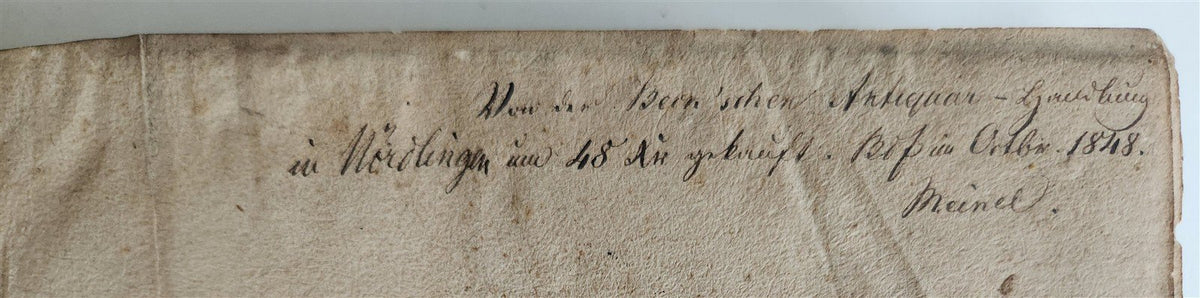 Von der Beck'schen Antiquar-Handlung
in Nördlingen um 48 Xr gekauft. im Octbr. 1848.
Meinel.